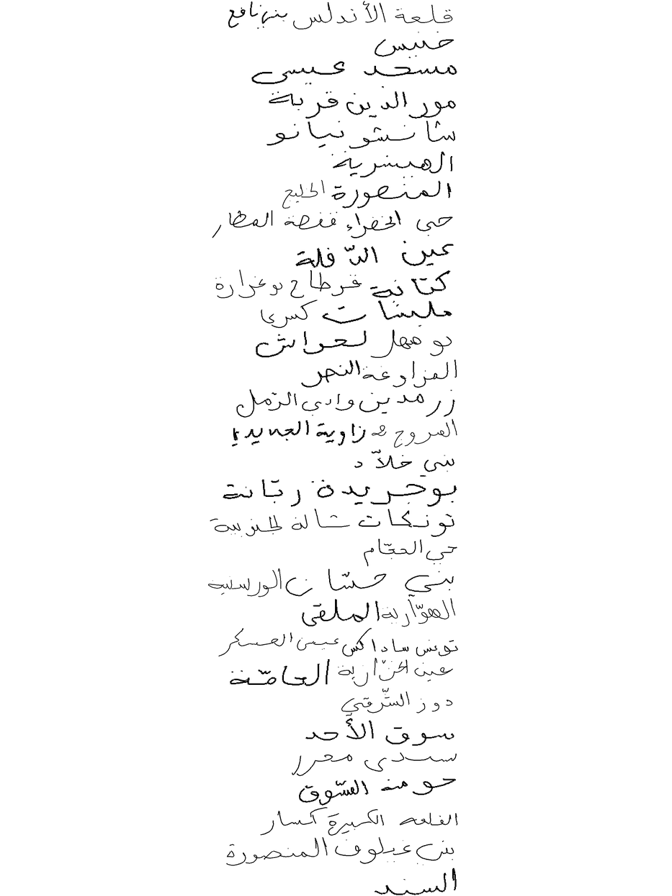 قلعة الأندلس بني نافع
خنيس
مسجد عيسى
مور الدين قربة
شانشو نيانو
الهيشرية
المنصورة الخليج
حي الخضراء قفصة المطار
عين الدّفلة
كتانة قرطاج بوغرارة
مليشات كسرى
بو مهل لعواش
الفزاوعة النحر
زرمدين وادي الرّمل
المروج 8 زاوية الجديدي
بني خلاّد
بوجريدة رتانة
تونكات شالة لجنوبية
حي الحجّام
بني حسّان الورسنية
الهوّارية الملقى
تونس ساداكس عيسى العسكر
عين الخرّارية العامّة
دوز الشّرقي
سوق الأحد
سيدي محرز
حومة السّوق
القلعة الكبيرة كسار
بني غيلوف المنصورة
السند